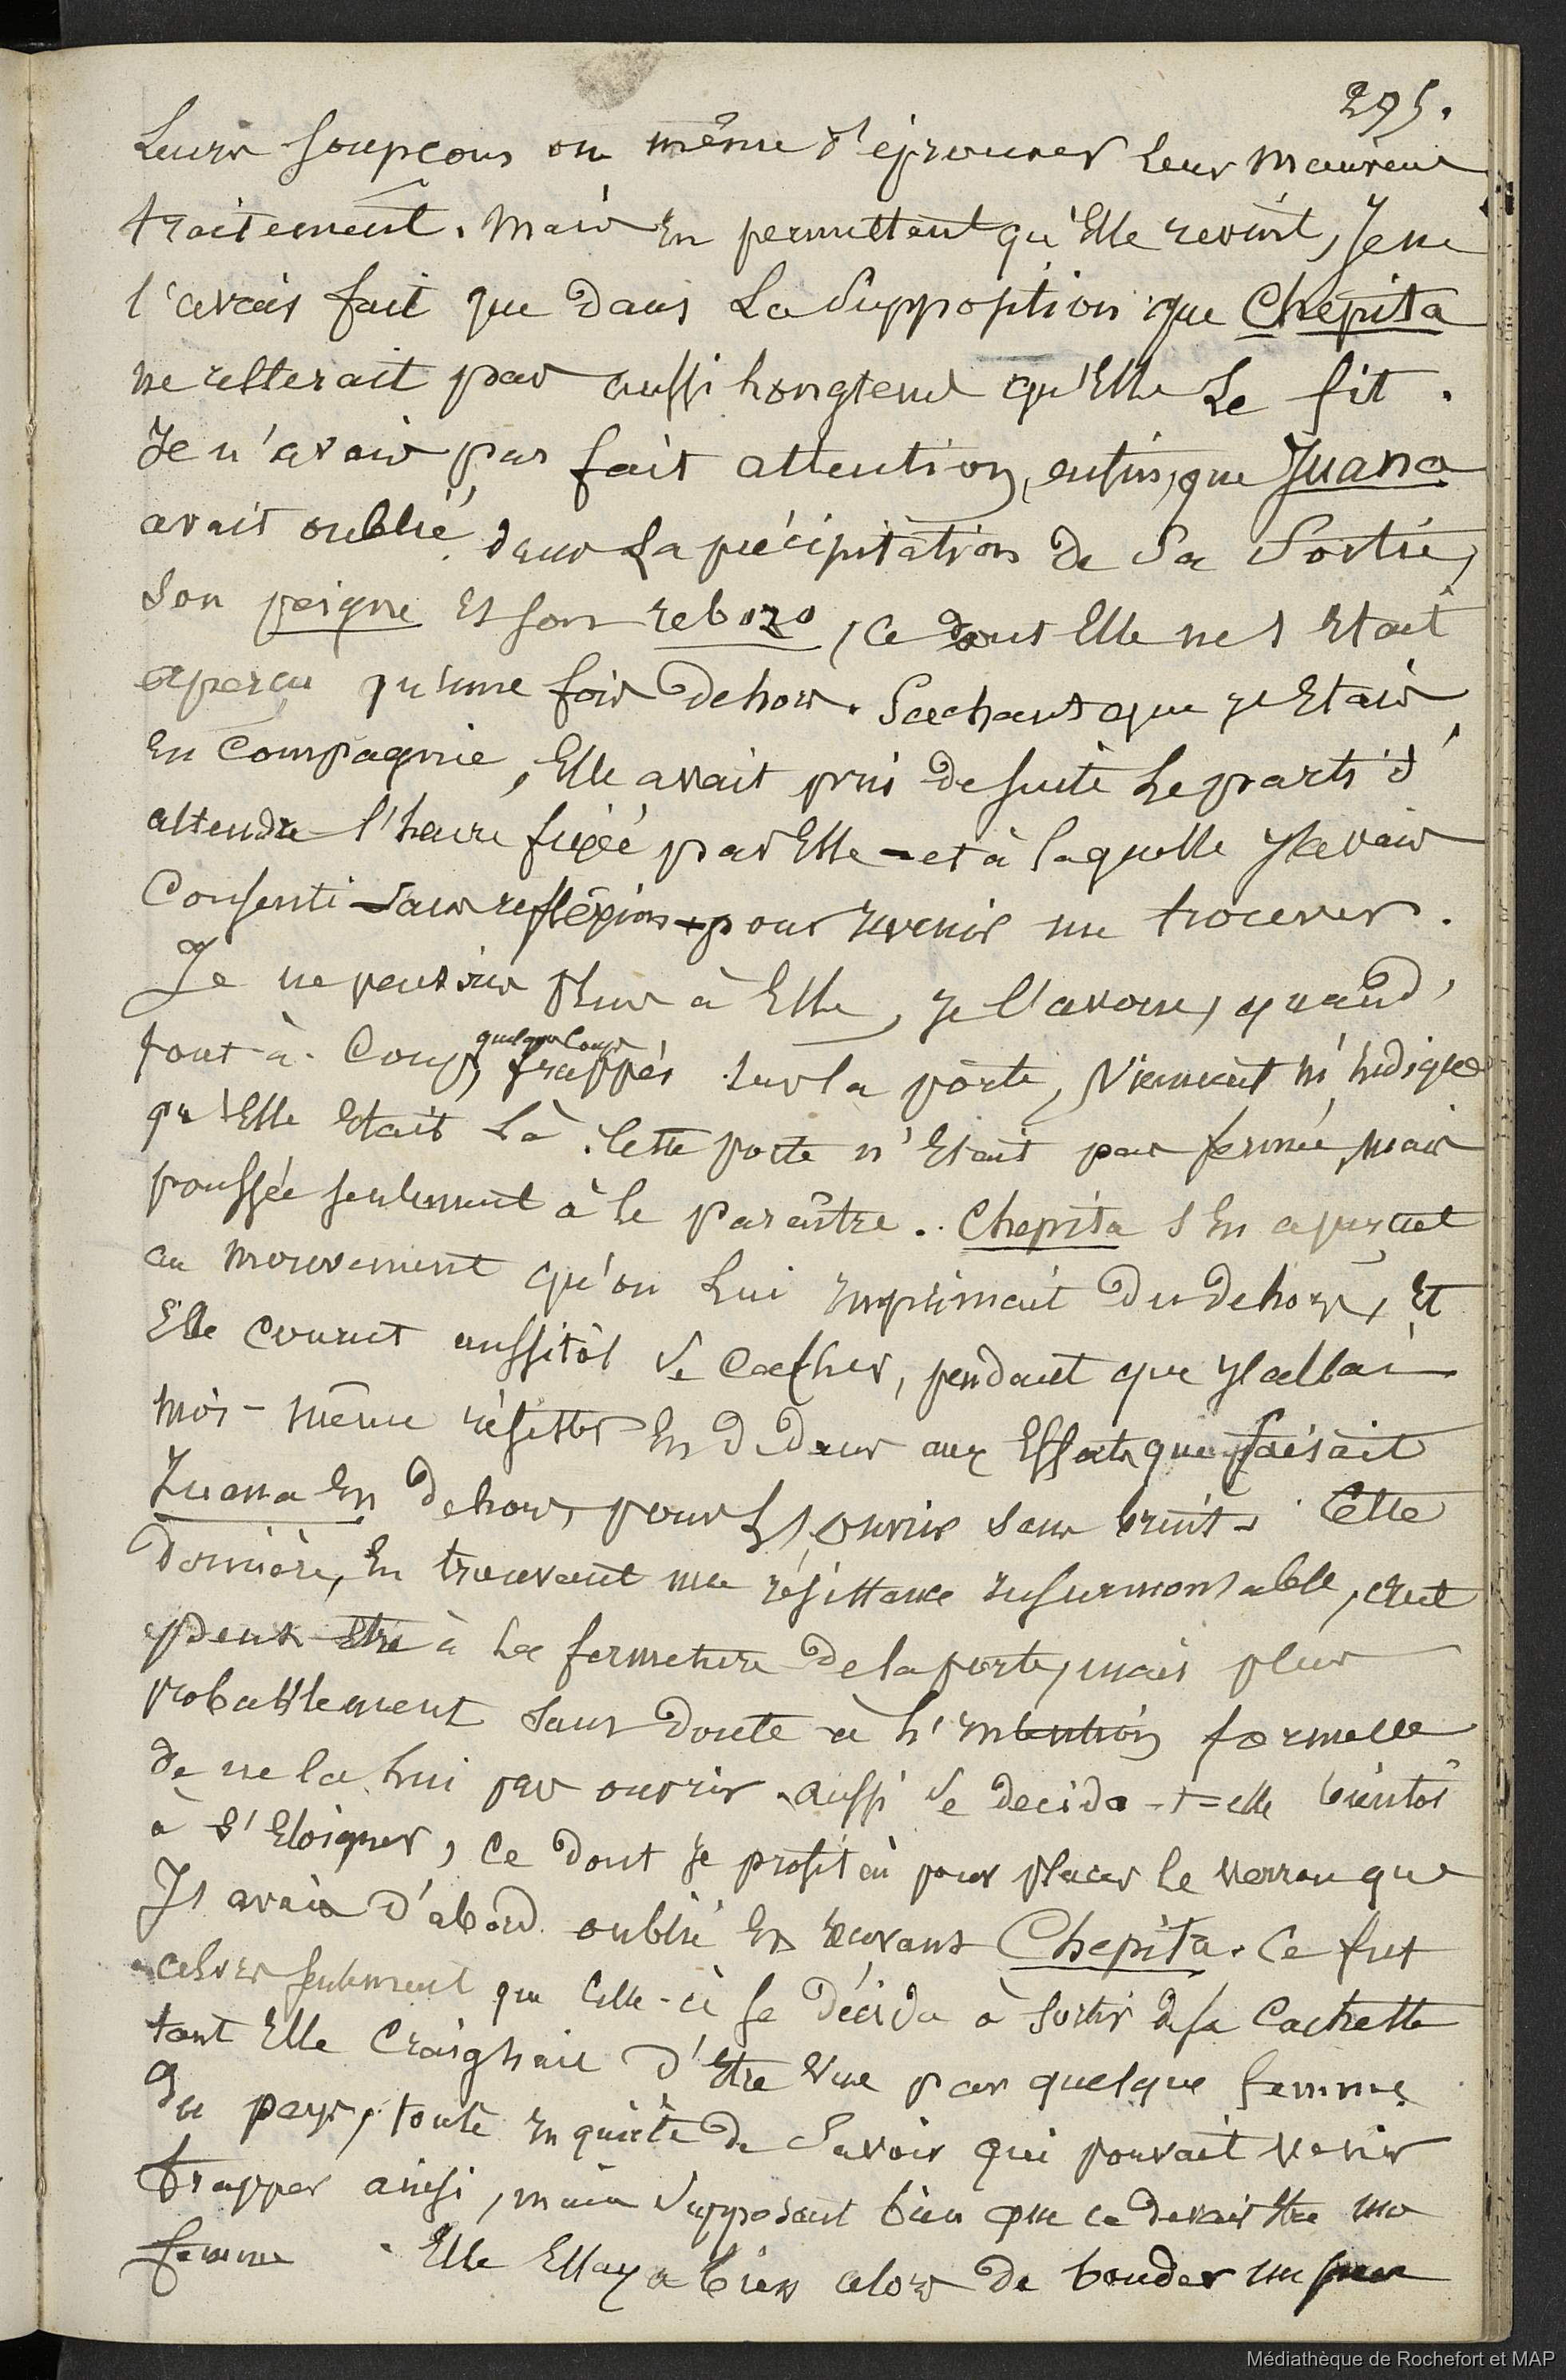 295.
Leurs soupçons ou même d'éprouver leur mauvais
traitement. Mais en permettant qu'Elle revint, Je ne
l'avais fait que dans La Supposition que Chepita
ne resterait pas aussi longtems qu'Elle Le fit.
Je n'avais pas fait attention, enfin, que Juana
avait oublié, dans la précipitation de Sa Sortie,
Son peigne et son rebozo, ce dont Elle ne s'etait
aperçu qu'une fois dehors. Sachant que j'étais
en Compagnie, Elle avait pris de suite Le parti d'
attendre l'heure fixée par Elle - et à laquelle j'avais
Consenti sans reflexion - pour revenir me trouver.
Je ne pensais Plus à Elle, je l'avoue, quand,
tout-à-Coup, quelques coups frappés sur la porte, vinrent m'indiquer
qu'Elle était Là. Cette porte n'était pas fermée, mais
poussée seulement à le paraître. Chepita s'en aperçut
au mouvement qu'on Lui imprimait du dehors, et
Elle courut aussitôt se Cacher, pendant que j'allai
moi-même résister en dedans aux Efforts que faisait
Juana en dehors, pour l'ouvrir sans bruit. Cette
dernière, en trouvant une résistance insurmontable, crut
peut-être à La fermeture de la porte, mais plus
probablement sans doute à L'intention formelle
de ne la Lui pas ouvrir. aussi se decida-t-elle bientôt
à s'éloigner, ce dont je profitai pour placer le verrou que
J'avais d'abord oublié en recevant Chepita. Ce fut
alors seulement que Celle-ci se décida à sortir de sa Cachette
tant Elle Craignait d'être vue par quelque femme
du pays, toute inquiète de savoir qui pouvait venir
frapper ainsi, mais supposant bien que ce devait être une
femme. Elle Essaya bien alors de bouder un peu
Médiathèque de Rochefort et MAP